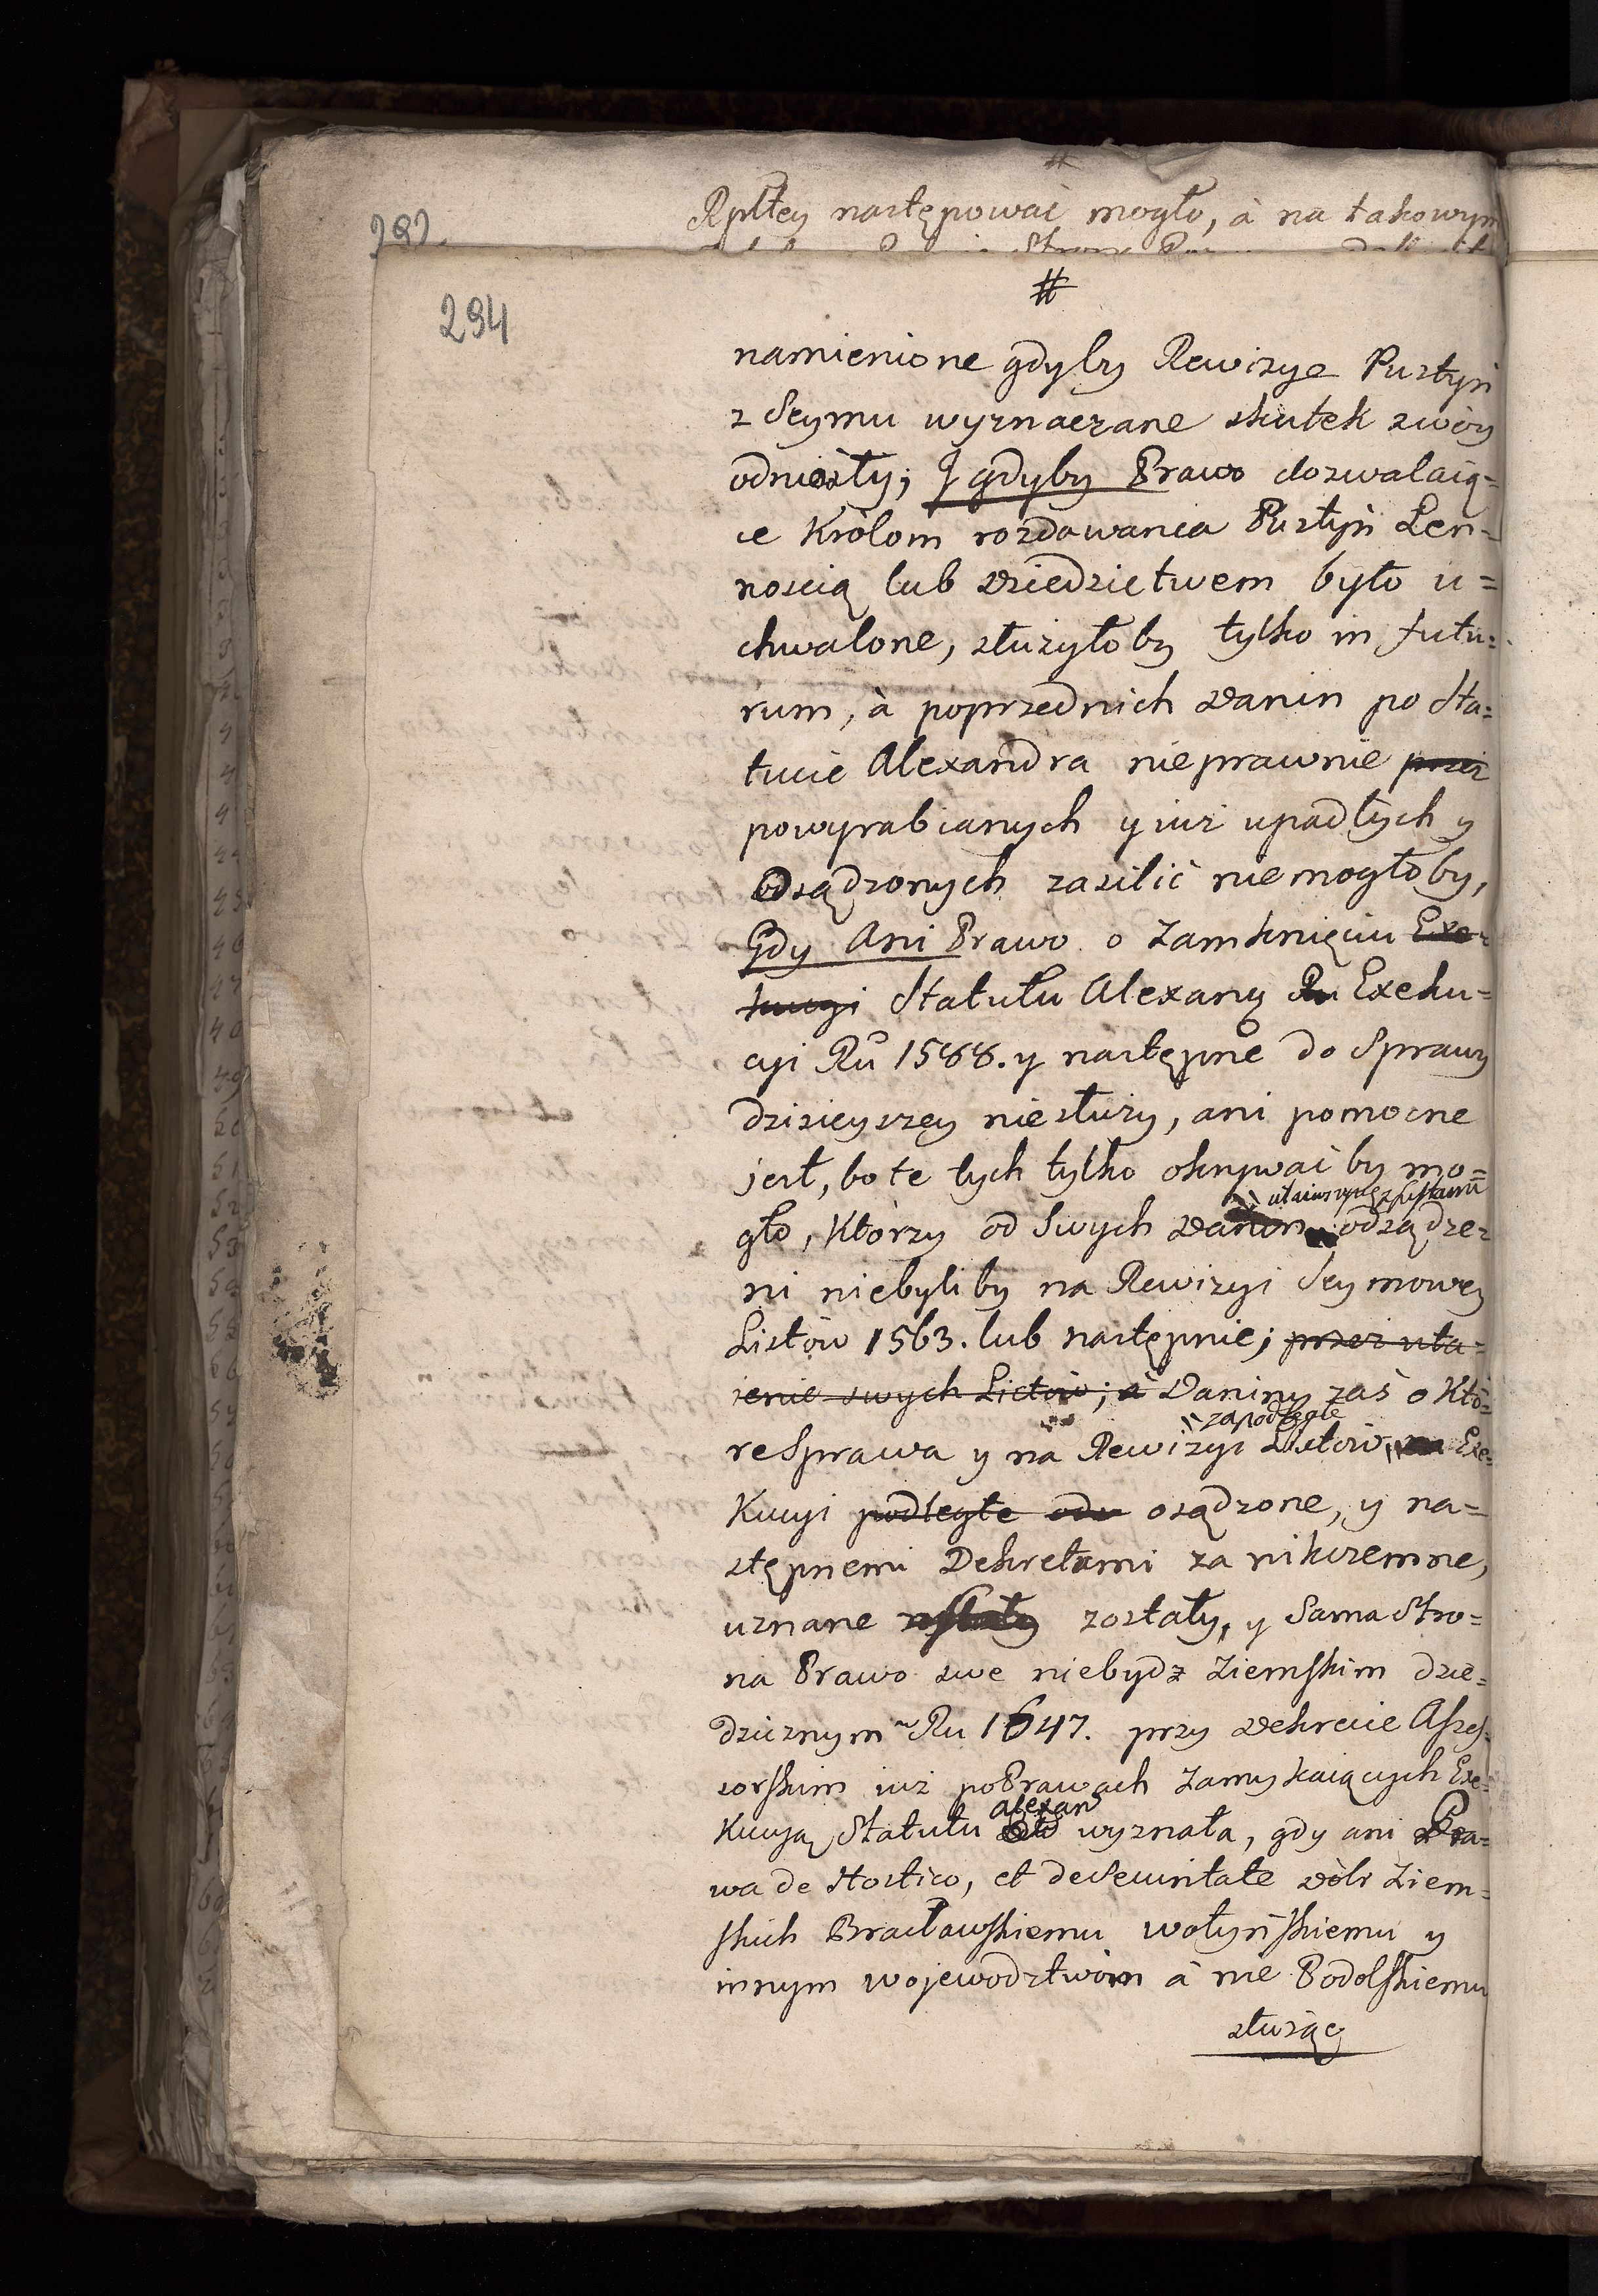 #
292.
Rpltey następować mogło, à na takowym
#
294
namienione gdyby Rewizye Pustyń
z Seymu wyznaczane skutek swóy
odniosły; J gdyby Prawo dozwalaią=
ce Królom rozdawania Pustyń Len=
noscią lub Dziedzictwem było u=
chwalone, służyłoby tylko in futu=
rum, à poprzednich Danin po Sta=
tucie Alexandra nieprawnie przez
powyrabianych y iuż upadłych y
Osądzonych zasilić niemogłoby,
Gdy Ani Prawo o Zamknięciu Exe=
kucyi Statutu Alexang Ru Exeku=
cyi Ru 1588. y następne do Sprawy
dzisieyszey niesłuży, ani pomocne
jest, bo te tych tylko okrywać by mo=
utaiwszych z Listami
gło, Którzy od Swych Danin odsądze=
ni niebyliby na Rewizyi Seymowey
Listów 1563. lub następnie; przez uta=
jenie swych Listów; à Daniny zaś o Któ=
zapodległe
re Sprawa y na Rewizyi Listów na Exe=
Kucyi podległe odu osądzone, y na=
stępnemi Dekretami za nikczemne,
uznane zostały zostały, y Sama Stro=
na Prawo swe niebydź Ziemskim dzie=
dzicznym Ru 1647. przy Dekrecie Assess=
sorskim iuż po Prawach Zamykaiących Exe=
alexan
Kucyą Statutu wyznała, gdy ani Pra=
wa de Hostico, et de Securitate Dóbr Ziem=
skich Bracławskiemu wołyńskiemu y
innym województwom à nie Podolskiemu
służące